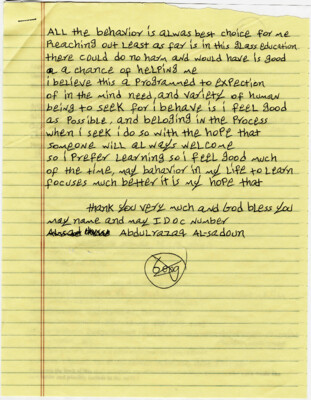 All the behavior is alwas best choice for me
Reaching out least as far is in this glass education
there could do no harm and would have is good
a chance of helping me
i believe this a programed to expection
of in the mind need, and variety of human
being to seek for i behave is i feel good
as possible, and beloging in the process
when i seek i do so with the hope that
someone will always welcome
so i prefer learning so i feel good much
of the time, may bahavior in my life to learn
focuses much better it is my hope that
thank you very much and God bless you
may name and may IDOC number
Abdulrazaq Al-sadoun